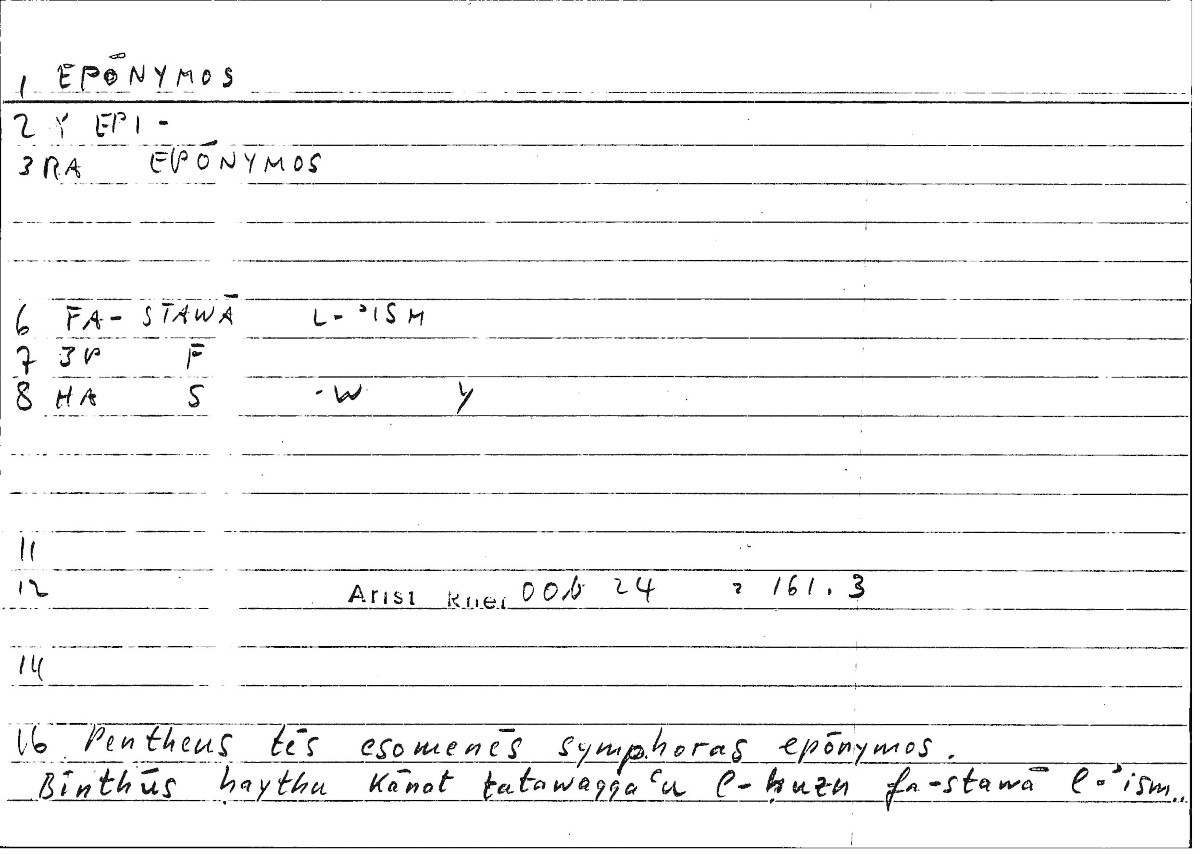 1 EPŌNYMOS
2 Y EPI -
3 RA EPŌNYMOS
6 FA- STAWĀ L- ʾISM
7 3P F
8 HA S -W Y
11
12 Arist Rhet 00b 24 = 161.3
14
16 Pentheus tēs esomenēs symphoras epōnymos.
Bīnthūs ḥaythu kānat tatawaqqaʿu l-ḥuzn fa-stawā l-ʾism..